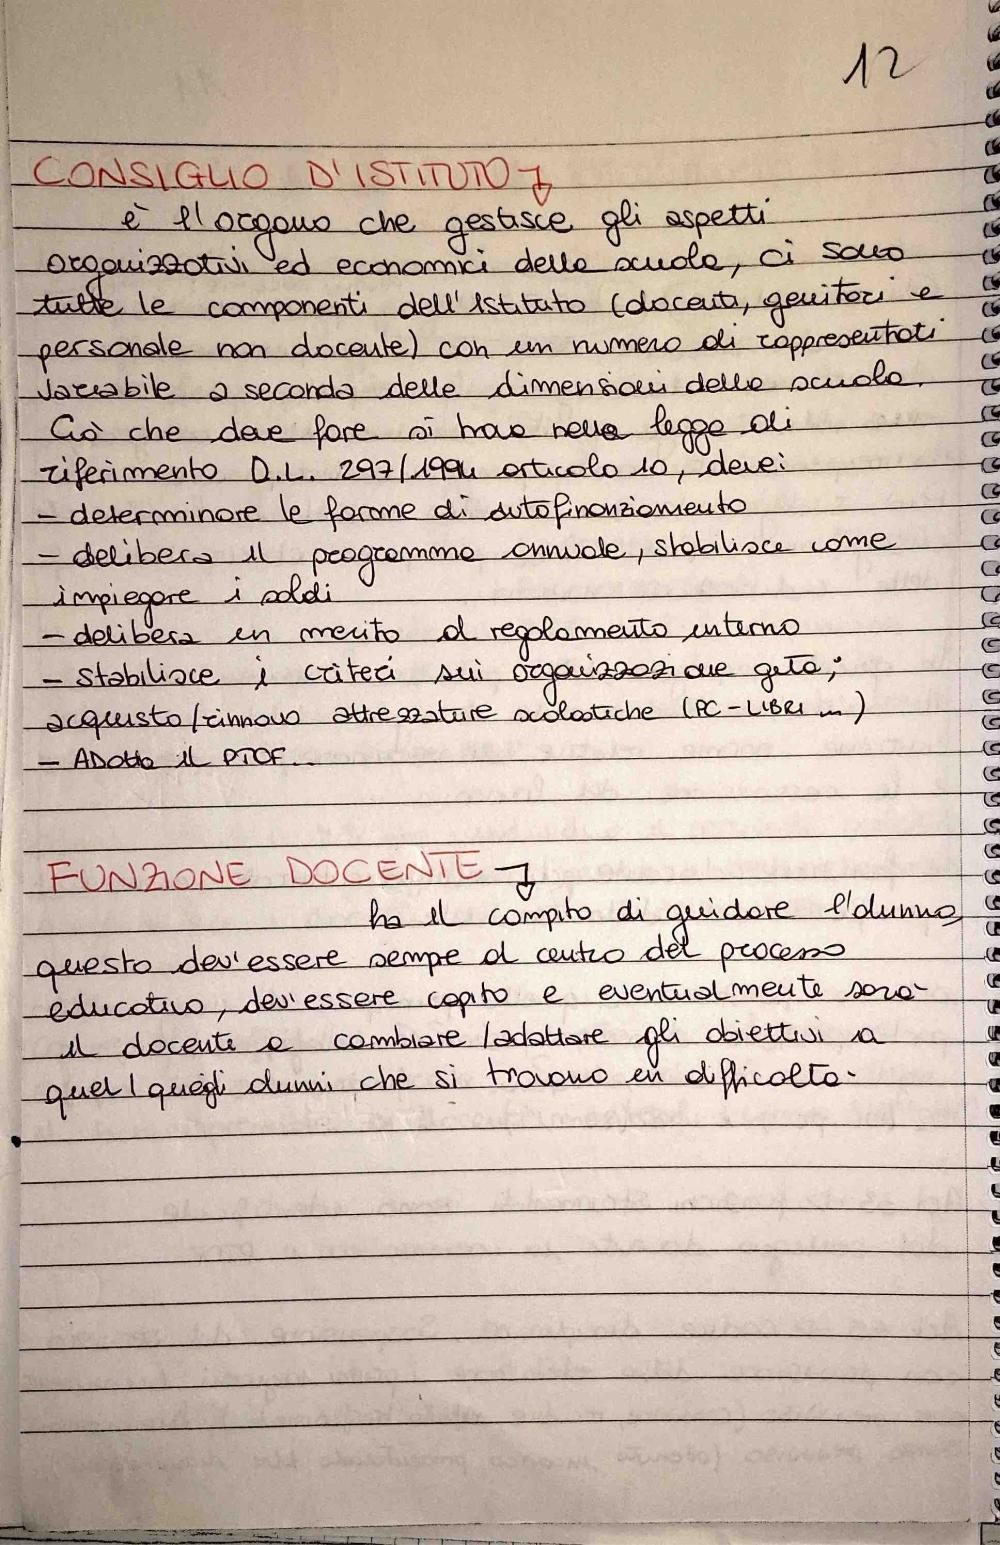 12
CONSIGLIO D'ISTITUTO
è l'organo che gestisce gli aspetti
organizzativi ed economici della scuola, ci sono
tutte le componenti dell'Istituto (docenti, genitori e
personale non docente) con un numero di rappresentati
variabile a seconda delle dimensioni della scuola.
Ciò che deve fare si trova nella legge di
riferimento D.L. 297/1994 articolo 10, deve:
- determinare le forme di autofinanziamento
- delibera il programma annuale, stabilisce come
impiegare i soldi
- delibera in merito al regolamento interno
- stabilisce i criteri sui organizzazione gita;
acquisto/rinnovo attrezzature scolastiche (PC-LIBRI ...)
- ADotta il PTOF..
FUNZIONE DOCENTE
ha il compito di guidare l'alunno,
questo dev'essere sempre al centro del processo
educativo, dev'essere capito e eventualmente sarà
il docente a cambiare/adattare gli obiettivi a
quel/quegli alunni che si trovano in difficoltà.